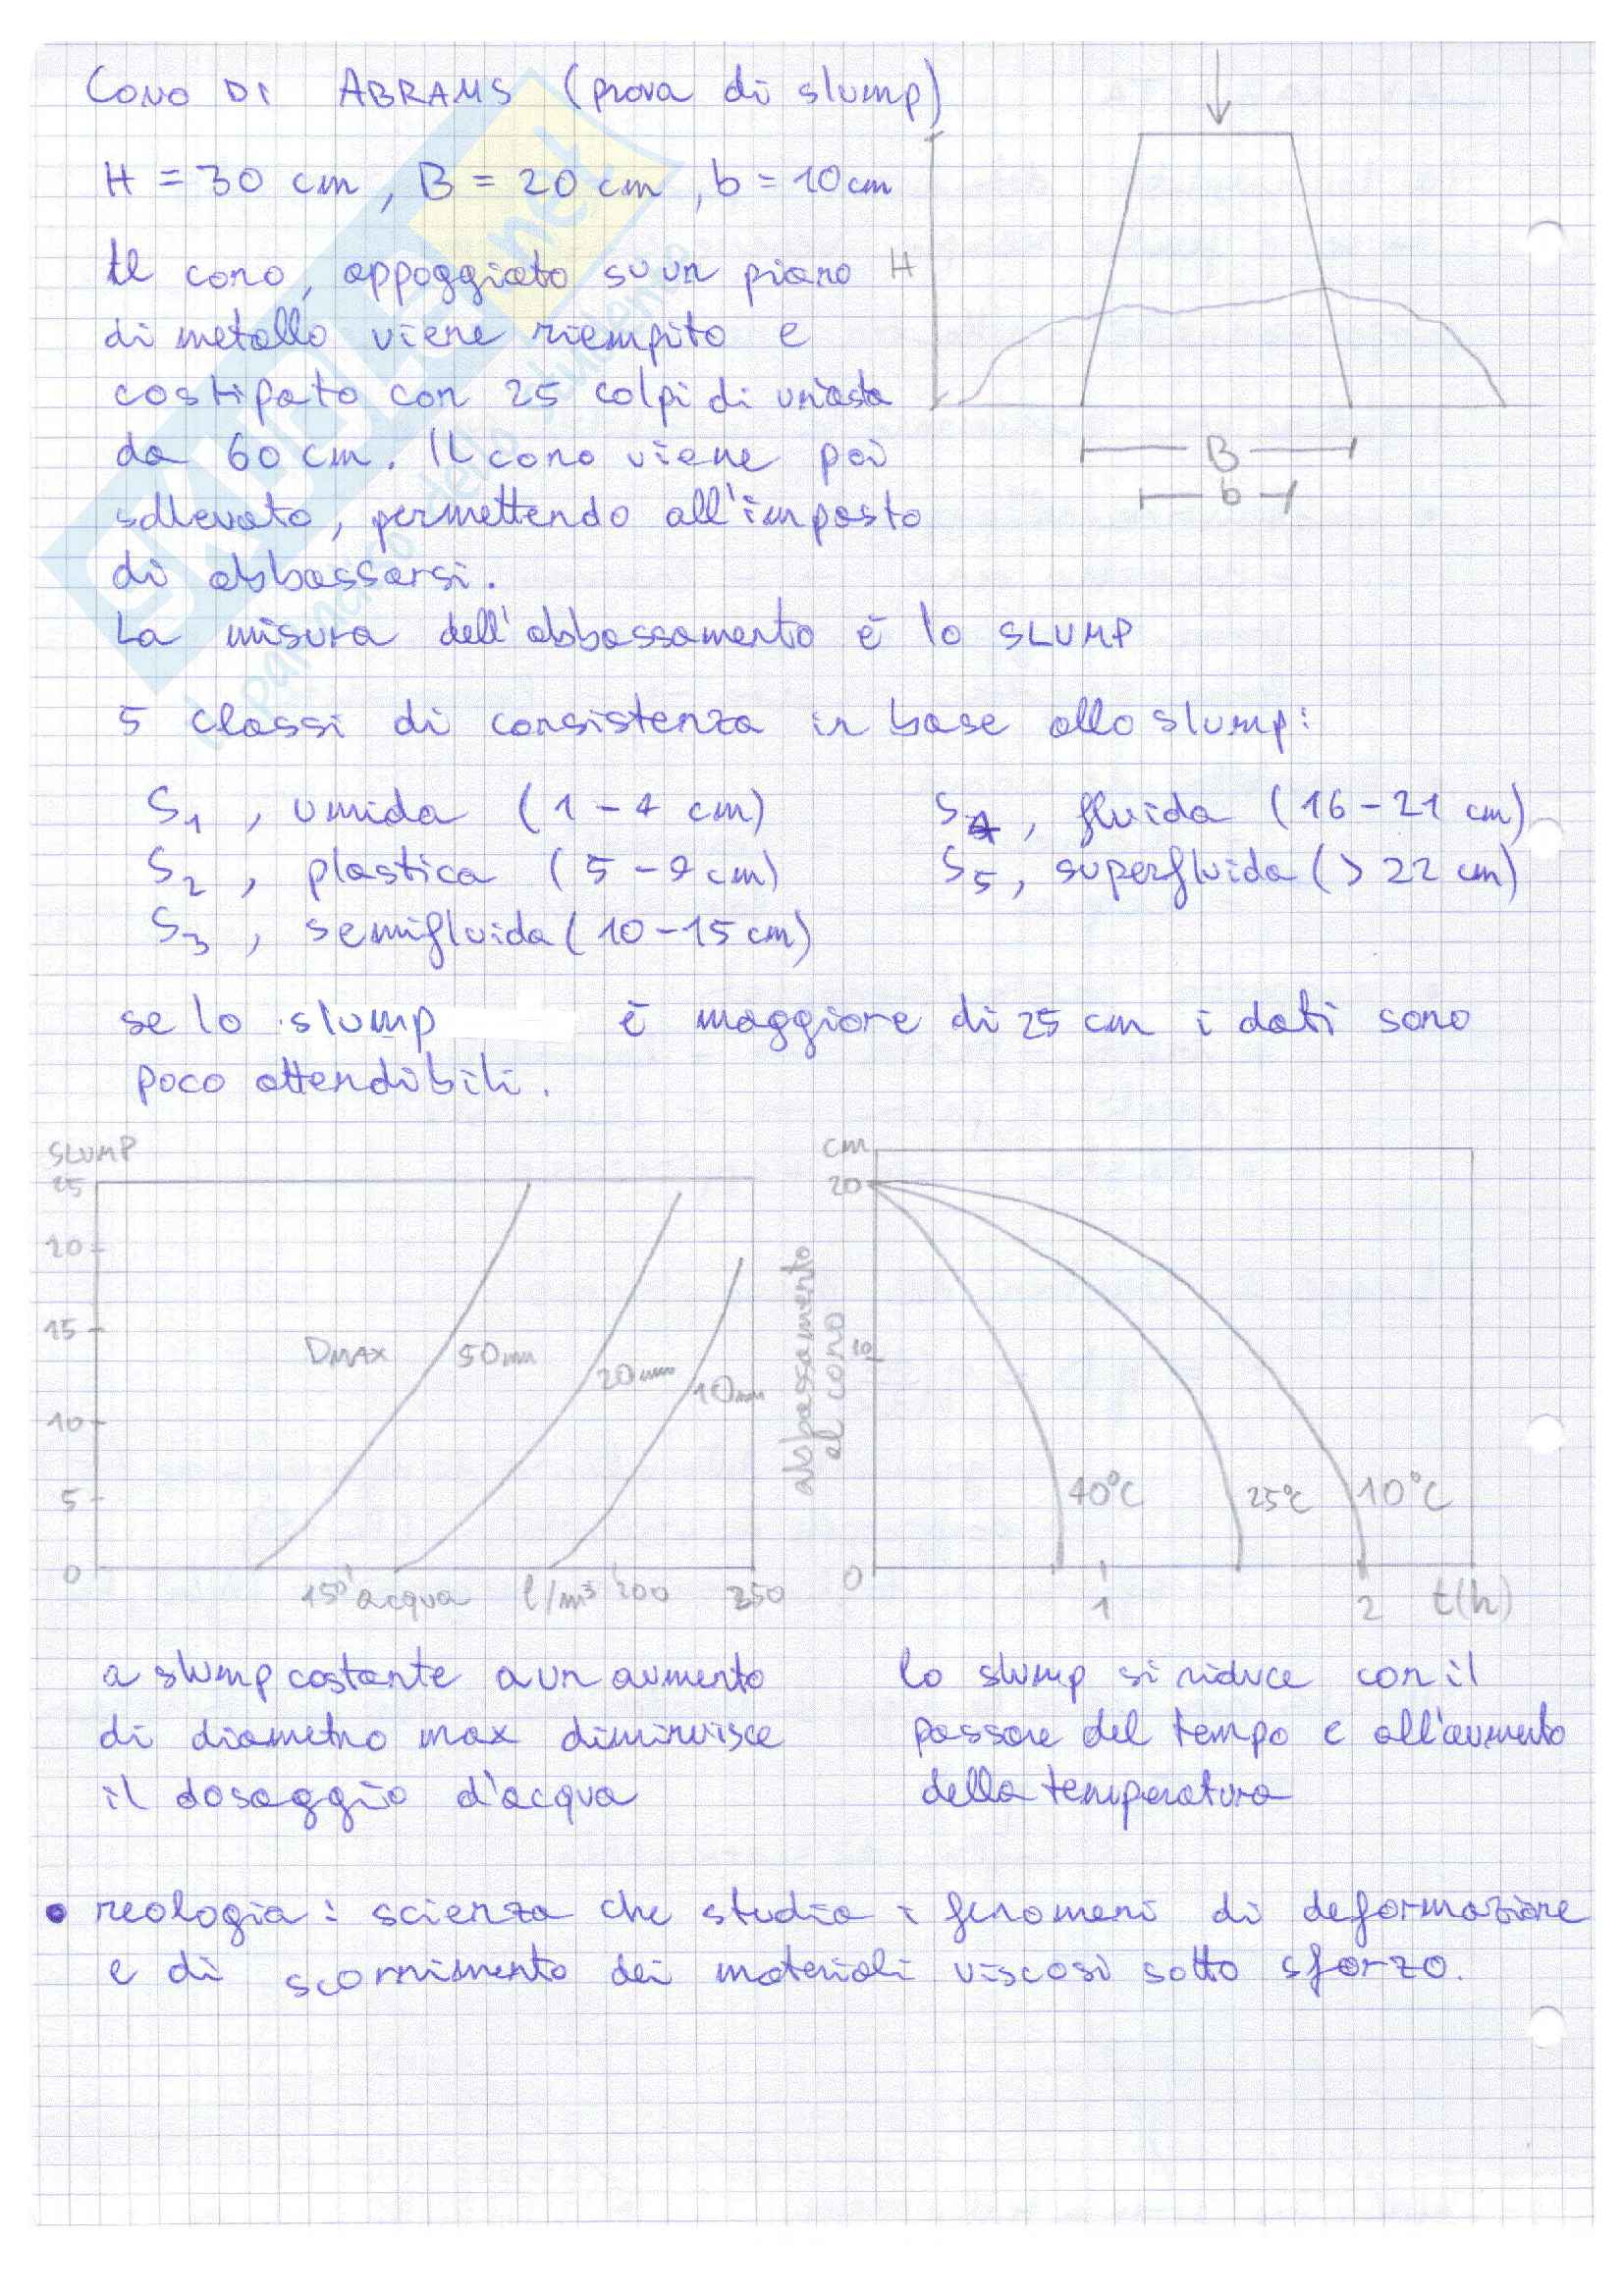 CONO DI ABRAMS (prova di slump)
H = 30 cm, B = 20 cm, b = 10 cm
Il cono, appoggiato su un piano
di metallo viene riempito e
costipato con 25 colpi di un'asta
da 60 cm. Il cono viene poi
sollevato, permettendo all'impasto
di abbassarsi.
La misura dell'abbassamento è lo SLUMP
H
B
b
5 classi di consistenza in base allo slump:
S1, umida (1-4 cm)
S2, plastica (5-9 cm)
S3, semifluida (10-15 cm)
S4, fluida (16-21 cm)
S5, superfluida (> 22 cm)
se lo slump è maggiore di 25 cm i dati sono
poco attendibili.
SLUMP
25
20
15
10
5
0
DMAX 50mm
20mm
10mm
150 acqua l/m³ 200 250
cm
20
10
0
abbassamento
al cono
40°C
25°C
10°C
1
2
t(h)
a slump costante a un aumento
di diametro max diminuisce
il dosaggio d'acqua
lo slump si riduce con il
passare del tempo e all'aumento
della temperatura
• reologia: scienza che studia i fenomeni di deformazione
e di scorrimento dei materiali viscosi sotto sforzo.